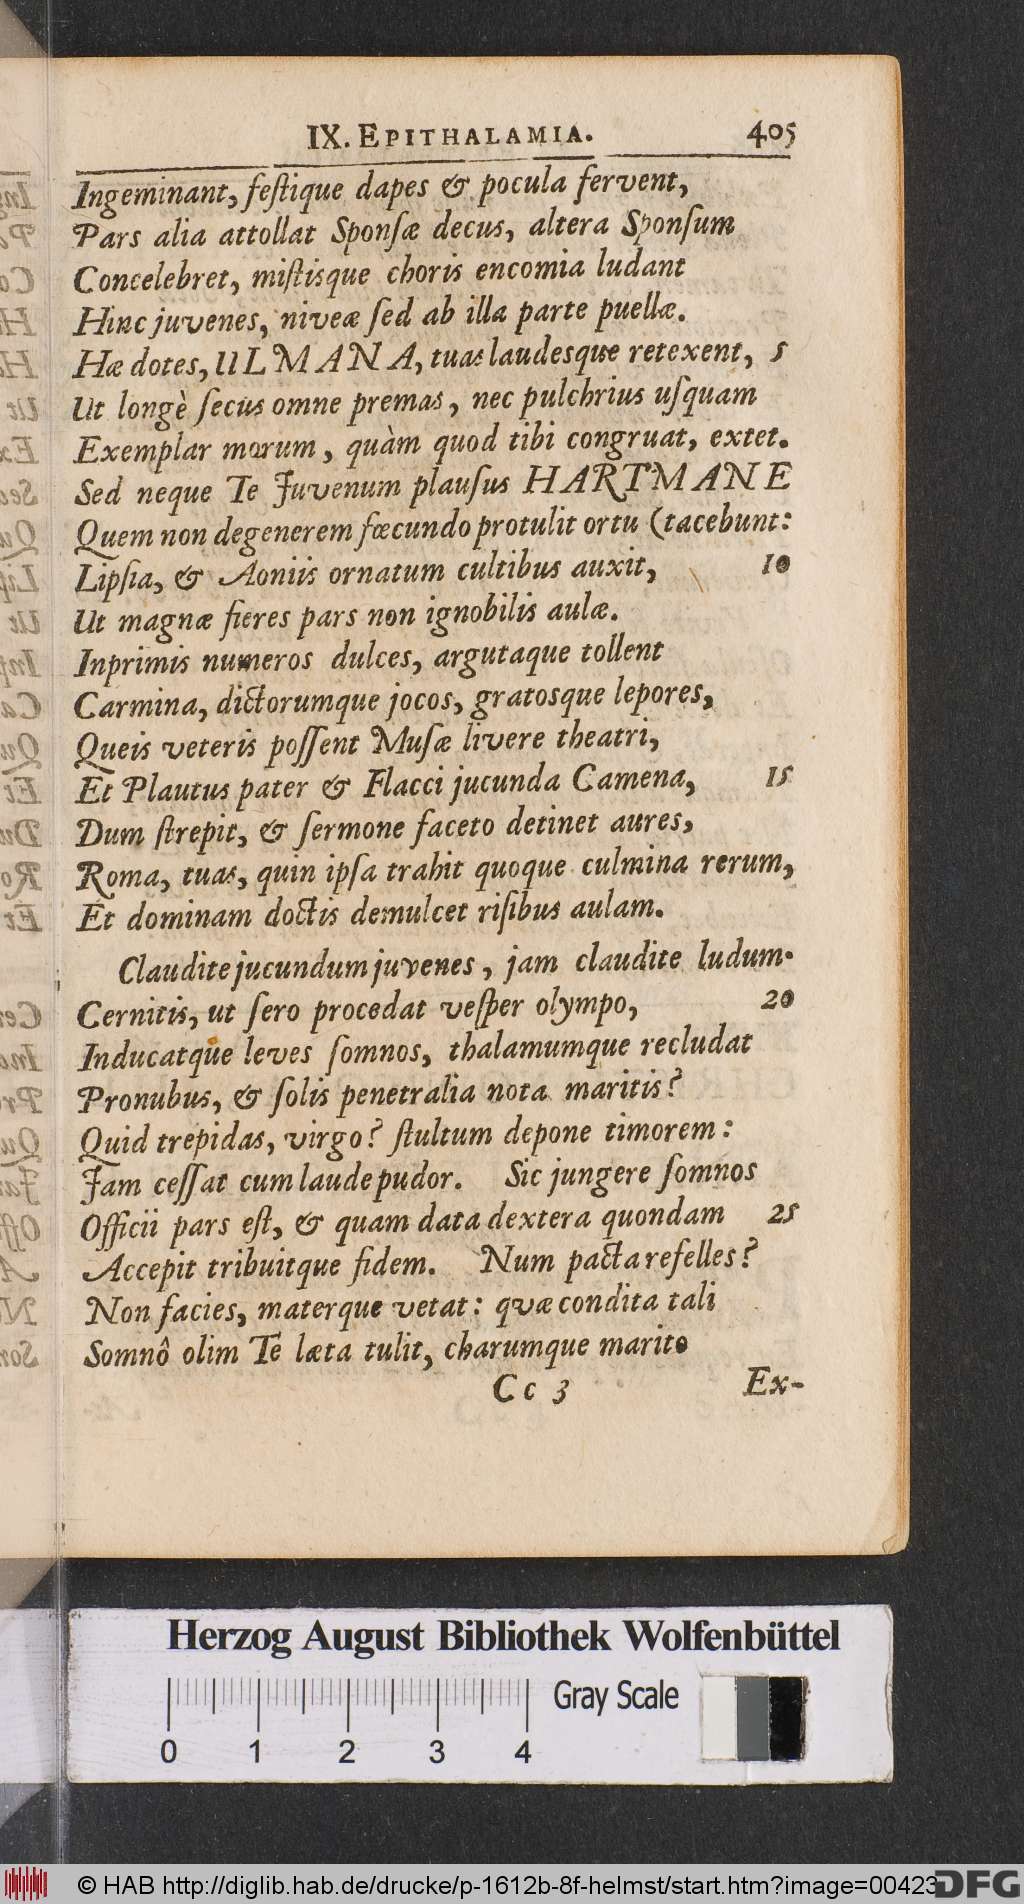 IX. EPITHALAMIA. 405
Ingeminant, feſtique dapes & pocula fervent,
Pars alia attollat Sponſæ decus, altera Sponſum
Concelebret, miſtisque choris encomia ludant
Hinc juvenes, niveæ ſed ab illa parte puellæ.
Hæ dotes, ULMANA, tuas laudesque retexent, 5
Ut longè ſecus omne premas, nec pulchrius uſquam
Exemplar morum, quàm quod tibi congruat, extet.
Sed neque Te Juvenum plauſus HARTMANE
Quem non degenerem fœcundo protulit ortu (tacebunt:
Lipſia, & Aoniis ornatum cultibus auxit, 10
Ut magnæ fieres pars non ignobilis aulæ.
Inprimis numeros dulces, argutaque tollent
Carmina, dictorumque jocos, gratosque lepores,
Queis veteris poſſent Muſæ livere theatri,
Et Plautus pater & Flacci jucunda Camena, 15
Dum ſtrepit, & ſermone faceto detinet aures,
Roma, tuas, quin ipſa trahit quoque culmina rerum,
Et dominam doctis demulcet riſibus aulam.
Claudite jucundum juvenes, jam claudite ludum.
Cernitis, ut ſero procedat veſper olympo, 20
Inducatque leves ſomnos, thalamumque recludat
Pronubus, & ſolis penetralia nota maritis?
Quid trepidas, virgo? ſtultum depone timorem:
Jam ceſſat cum laude pudor. Sic jungere ſomnos
Officii pars eſt, & quam data dextera quondam 25
Accepit tribuitque fidem. Num pacta refelles?
Non facies, materque vetat: qvæ condita tali
Somnô olim Te læta tulit, charumque marito
Cc 3 Ex-
Herzog August Bibliothek Wolfenbüttel
Gray Scale
0 1 2 3 4
© HAB http://diglib.hab.de/drucke/p-1612b-8f-helmst/start.htm?image=00423
DFG